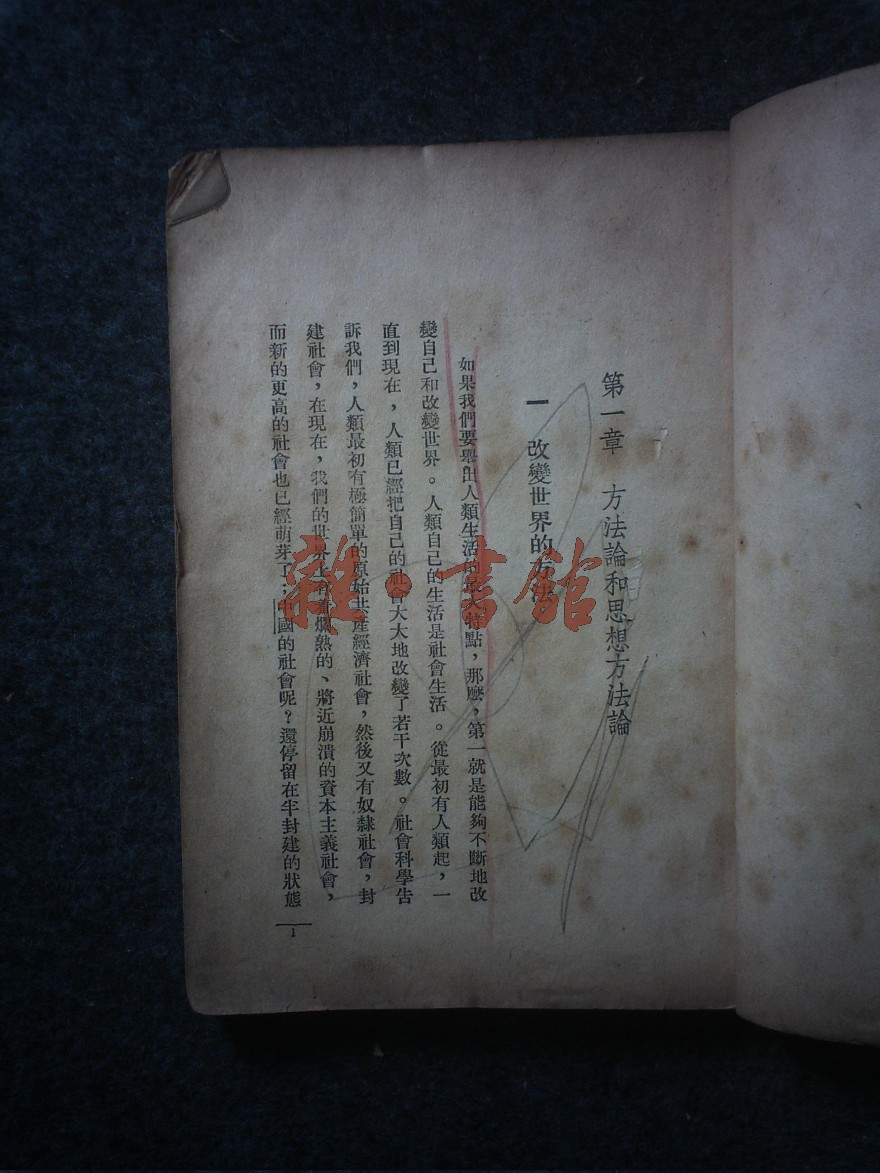 第一章 方法論和思想方法論
一 改變世界的方法
如果我們要舉出人類生活的最大特點，那麼，第一就是能夠不斷地改
變自己和改變世界。人類自己的生活是社會生活。從最初有人類起，一
直到現在，人類已經把自己的社會大大地改變了若干次數。社會科學告
訴我們，人類最初有極簡單的原始共產經濟社會，然後又有奴隸社會，封
建社會，在現在，我們的世界上有爛熟的、將近崩潰的資本主義社會，
而新的更高的社會也已經萌芽了；中國的社會呢？還停留在半封建的狀態
1
雜·書館